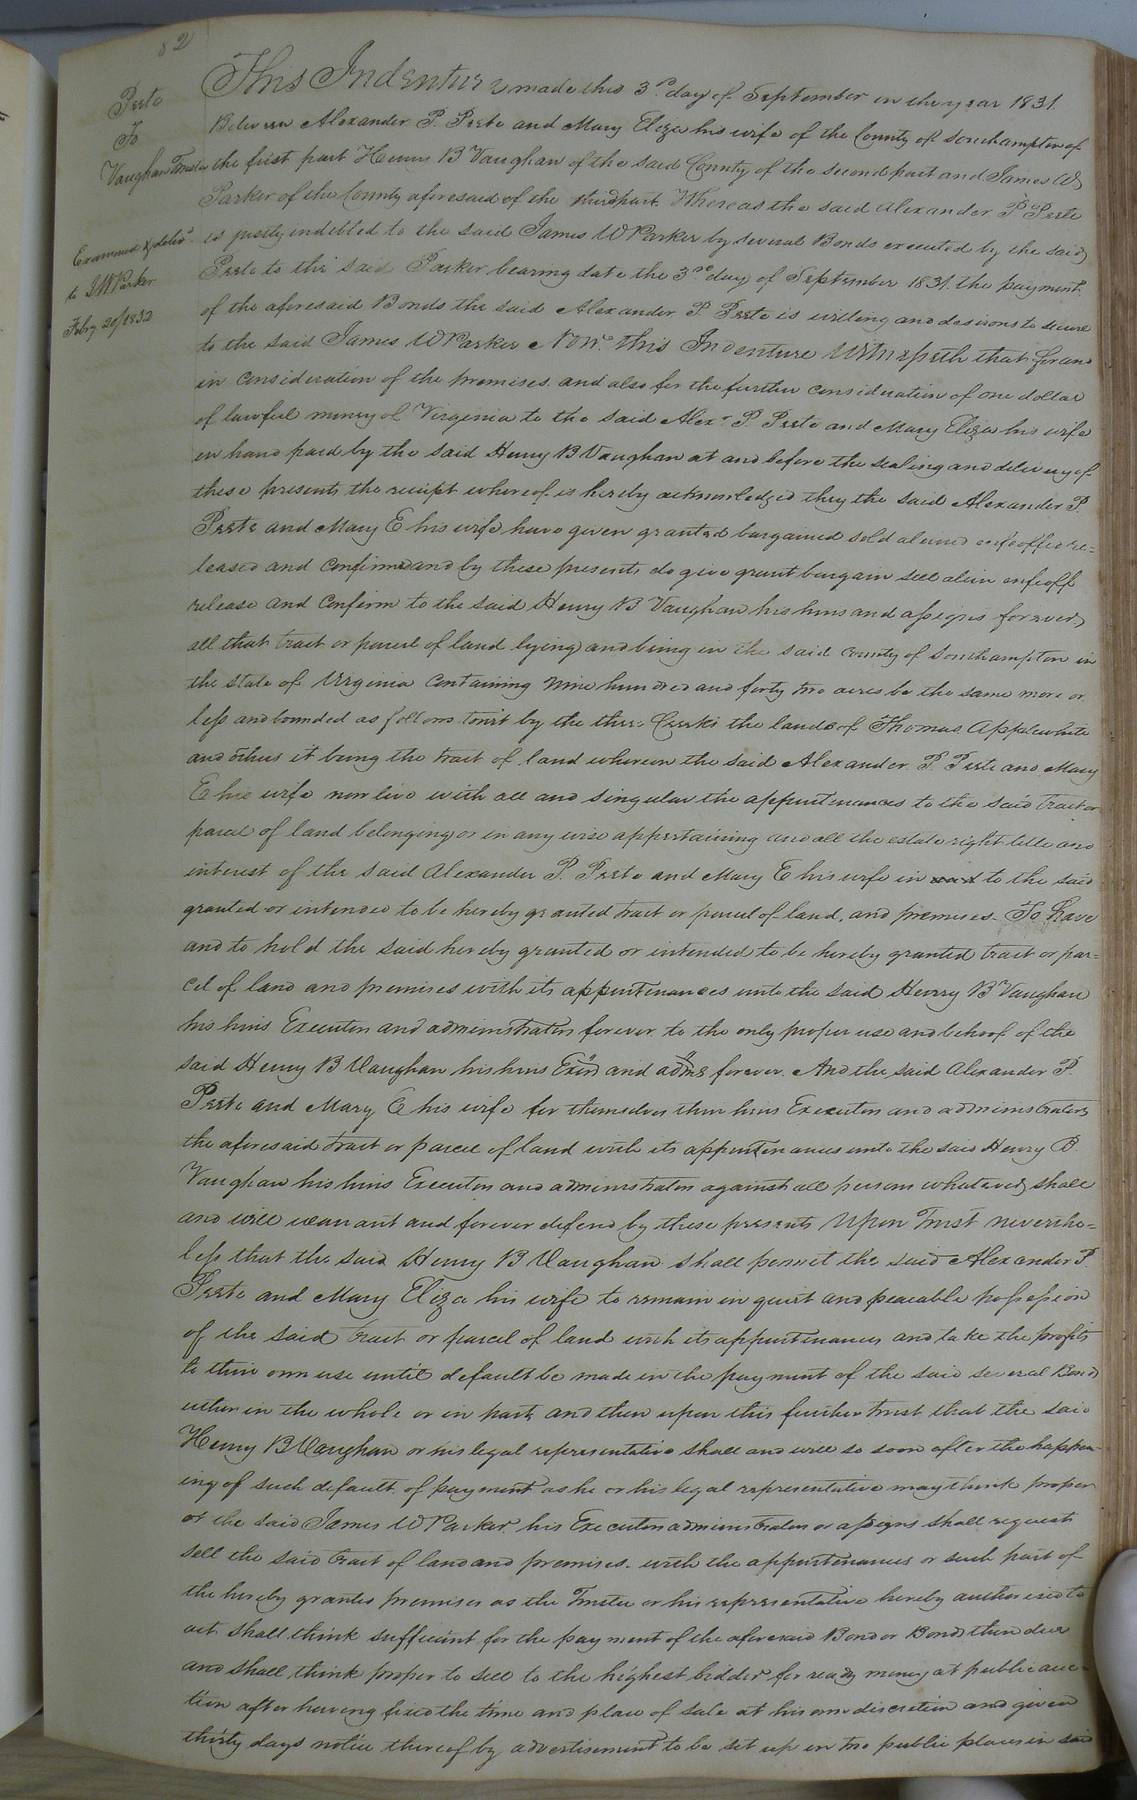 82
Peete
To
Vaughan Trustee
Examined & delivd
to J W Parker
Feby 20/1832
This Indenture made this 3rd day of September in the year 1831.
Between Alexander P. Peete and Mary Eliza his wife of the County of Southampton of
the first part Henry B Vaughan of the said County of the second part and James W
Parker of the County aforesaid of the third part. Whereas the said Alexander P Peete
is justly indebted to the said James W Parker by several Bonds executed by the said
Peete to the said Parker bearing date the 3rd day of September 1831. the payment
of the aforesaid Bonds the said Alexander P Peete is willing and desirous to secure
to the said James W Parker Now this Indenture Witnesseth that for and
in consideration of the premises and also for the further consideration of one dollar
of lawful money of Virginia to the said Alexr P. Peete and Mary Eliza his wife
in hand paid by the said Henry B Vaughan at and before the sealing and delivery of
these presents the receipt whereof is hereby acknowledged they the said Alexander P.
Peete and Mary E his wife have given granted bargained sold aliened enfeoffed re=
leased and confirmed and by these presents do give grant bargain sell alien enfeoff
release and confirm to the said Henry B Vaughan his heirs and assigns forever
all that tract or parcel of land lying and being in the said County of Southampton in
the state of Virginia containing nine hundred and forty two acres be the same more or
less and bounded as follows towit by the three Creeks the lands of Thomas Applewhite
and others it being the tract of land whereon the said Alexander P. Peete and Mary
E his wife now live with all and singular the appurtenances to the said tract or
parcel of land belonging or in any wise appertaining and all the estate right title and
interest of the said Alexander P. Peete and Mary E his wife in to the said
granted or intended to be hereby granted tract or parcel of land, and premises. To have
and to hold the said hereby granted or intended to be hereby granted tract or par=
cel of land and premises with its appurtenances unto the said Henry B Vaughan
his heirs Executors and administrators forever to the only proper use and behoof of the
said Henry B Vaughan his heirs Exors and adms forever. And the said Alexander P.
Peete and Mary E his wife for themselves their heirs Executors and administrators
the aforesaid tract or parcel of land with its appurtenances unto the said Henry B.
Vaughan his heirs Executors and administrators against all persons whatever shall
and will warrant and forever defend by these presents Upon Trust neverthe=
less that the said Henry B Vaughan shall permit the said Alexander P.
Peete and Mary Eliza his wife to remain in quiet and peaceable possession
of the said tract or parcel of land with its appurtenances and take the profits
to their own use until default be made in the payment of the said several Bonds
either in the whole or in part, and then upon this further trust that the said
Henry B Vaughan or his legal representative shall and will so soon after the happen=
ing of such default of payment as he or his legal representative may think proper
or the said James W Parker his Executors administrators or assigns shall request
sell the said tract of land and premises with the appurtenances or such part of
the hereby granted premises as the Trustee or his representative hereby authorised to
act shall think sufficient for the payment of the aforesaid Bond or Bonds then due
and shall think proper to sell to the highest bidder for ready money at public auc=
tion after having fixed the time and place of sale at his own discretion and given
thirty days notice thereof by advertisement to be set up in two public places in said